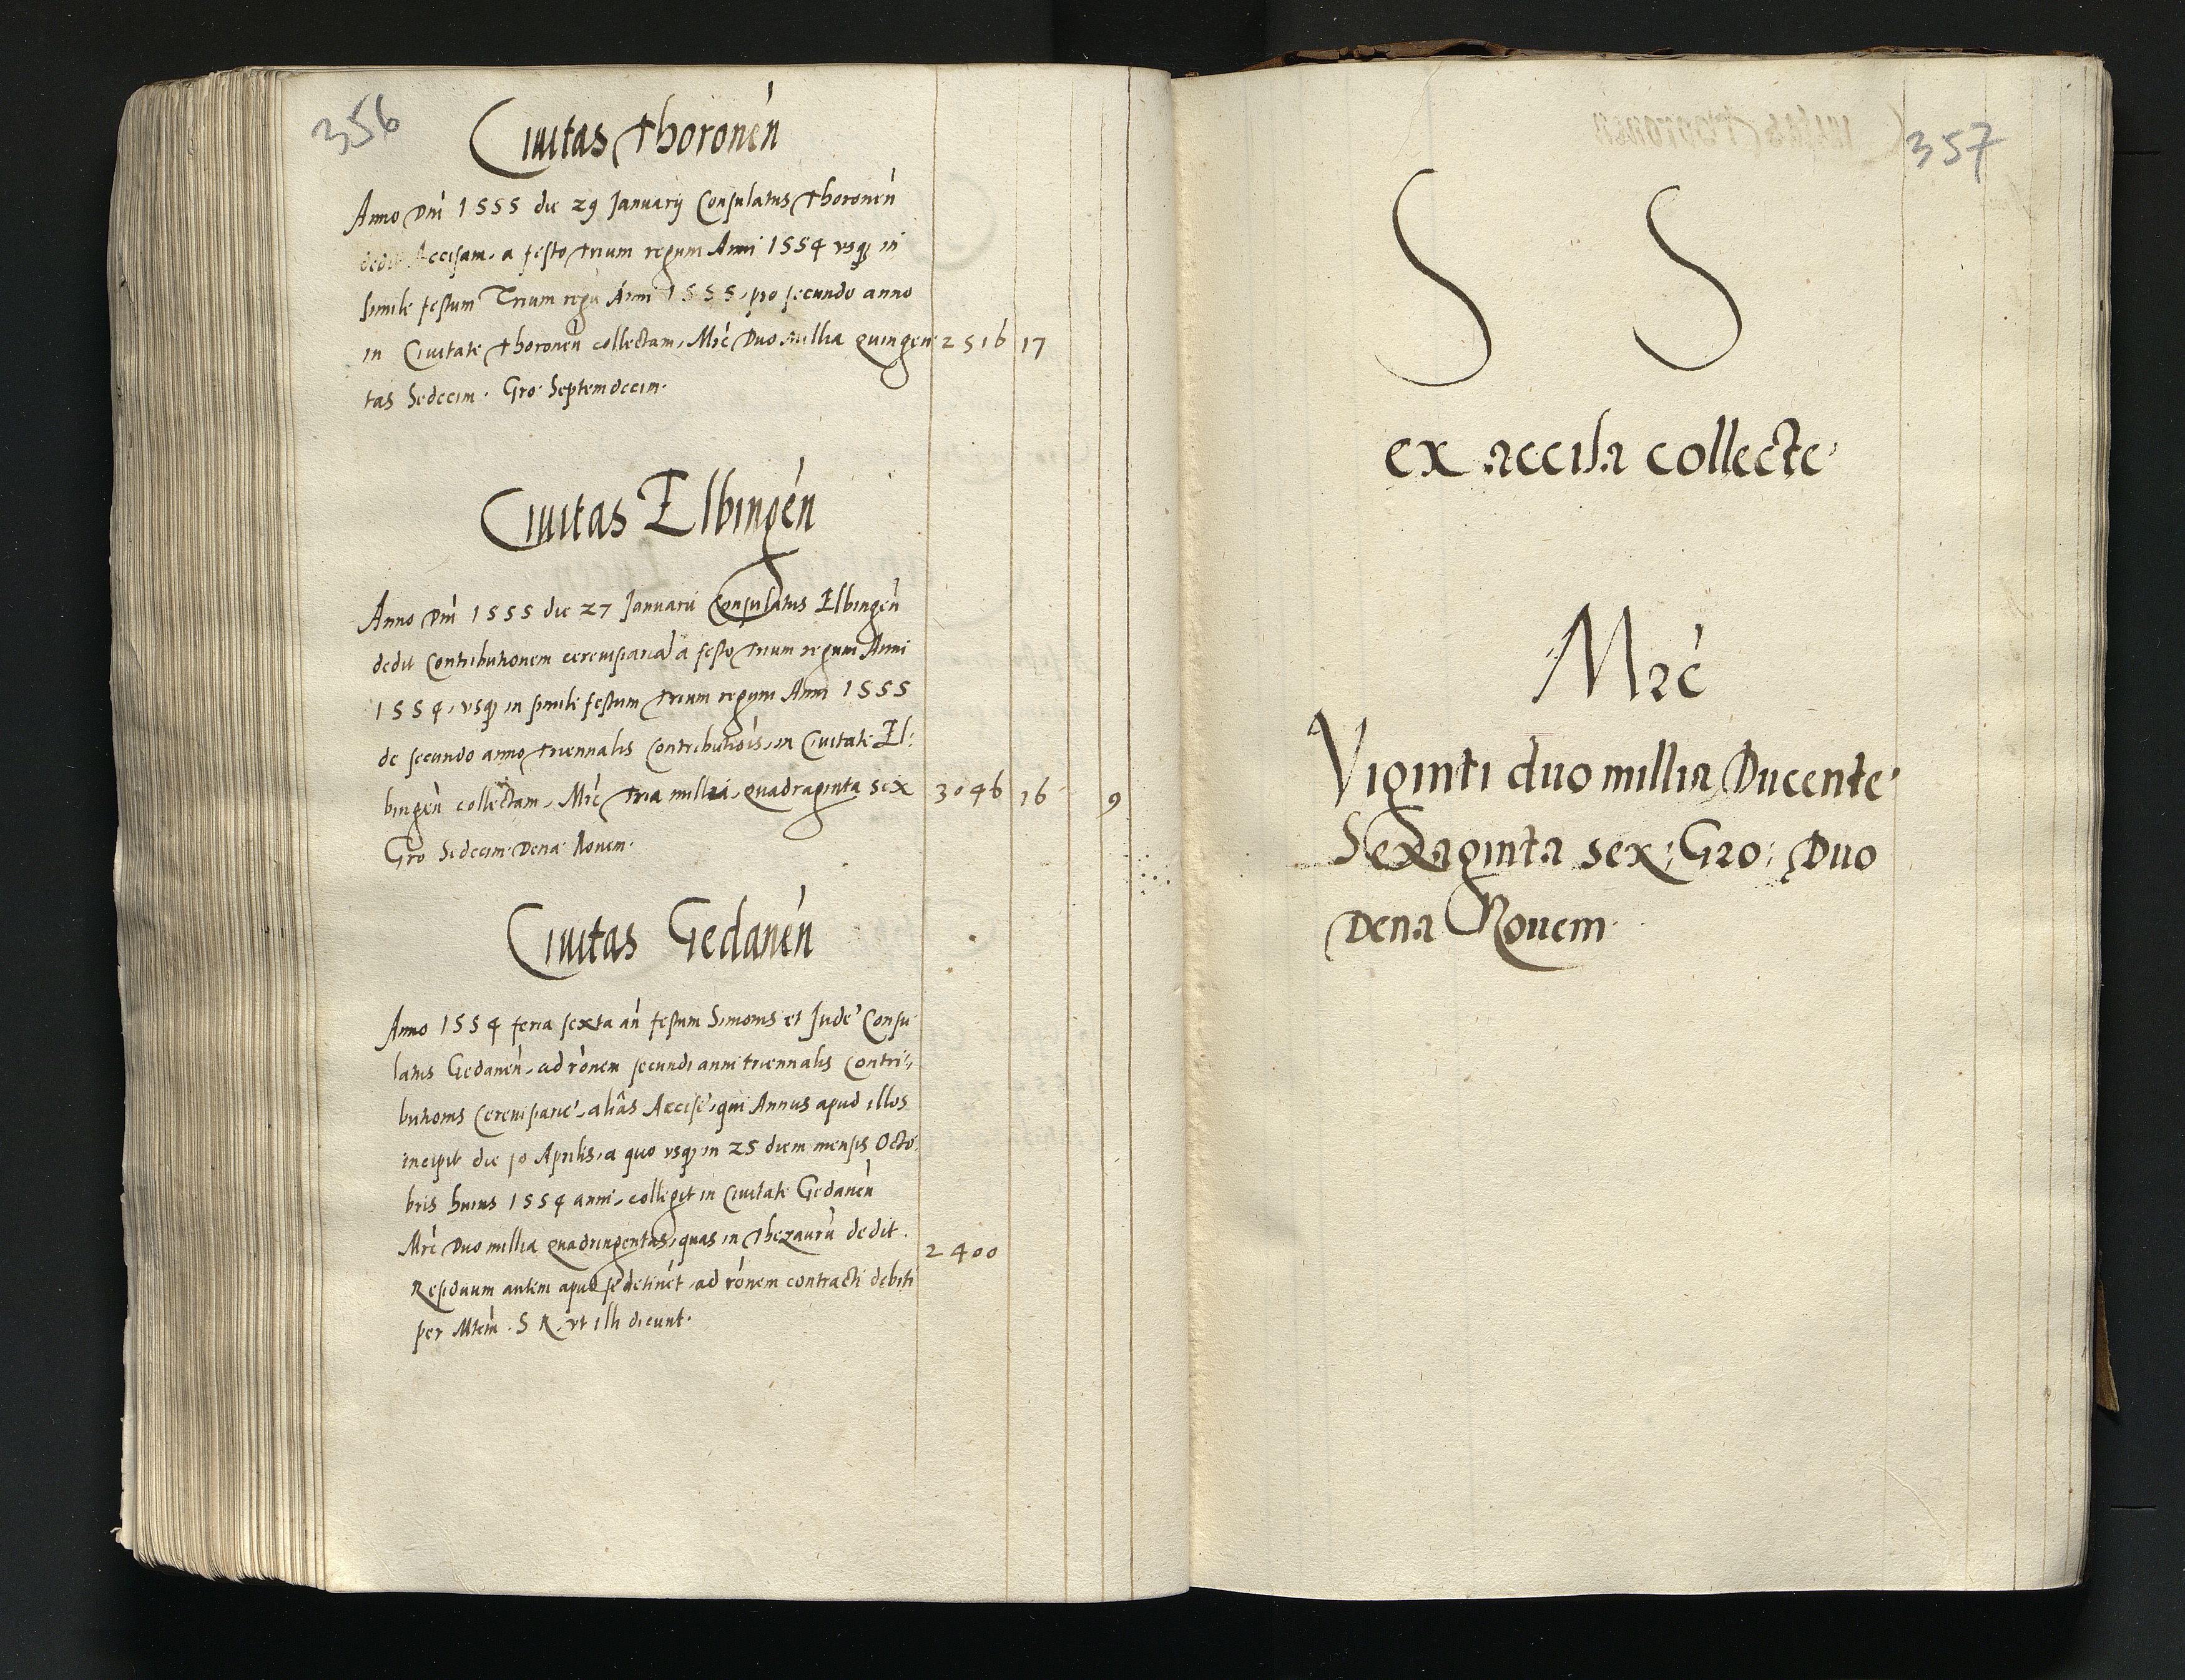 356
Ciuitas Thoronen̄
Anno Dn̄i 1555 die 29 Januarij Consulatus Thoronen̄
dedit Accisam, a festo trium regum Anni 1554 vsq3 in
simile festum Trium regū Anni 1555, pro secundo anno
in Ciuitate Thoronen̄ collectam, Mrc̄ Duo millia quingen 2516 17
tas Sedecim. Gro. Septemdecim.
Ciuitas Elbingen̄
Anno Dn̄i 1555 die 27 Januarii Consulatus Elbingen̄
dedit Contributionem cereuisiariā a festo trium regum Anni
1554, vsq3 in simile festum trium regum Anni 1555
de secundo anno triennalis Contributiōis, in Ciuitate El:
bingen̄ collectam, Mrc̄ tria millia, quadraginta sex 3046 16 9
Gro Sedecim. Dena. Nouem.
Ciuitas Gedanen̄
Anno 1554 feria sexta an̄ festum Simonis et Jude Consu
latus Gedanen̄, ad rōnem secundi anni triennalis Contri:,
butionis Cereuisiarie, aliās Accise, qui Annus apud illos
incipit die 10 Aprilis, a quo vsq3 in 25 diem mensis Octo:
bris huius 1554 anni, collegit in Ciuitate Gedanen̄
Mrc̄ Duo millia quadringentas, quas in Thezaurū dedit. 2400
Residuum autem apud se detinēt, ad rōnem contracti debiti
per Mtem̄. S R. vt illi dicunt.
357
S S
ex accisa collecte
Mrc̄
Viginti duo millia Ducente
Sexaginta sex: Gro: Duo
Dena Nouem.